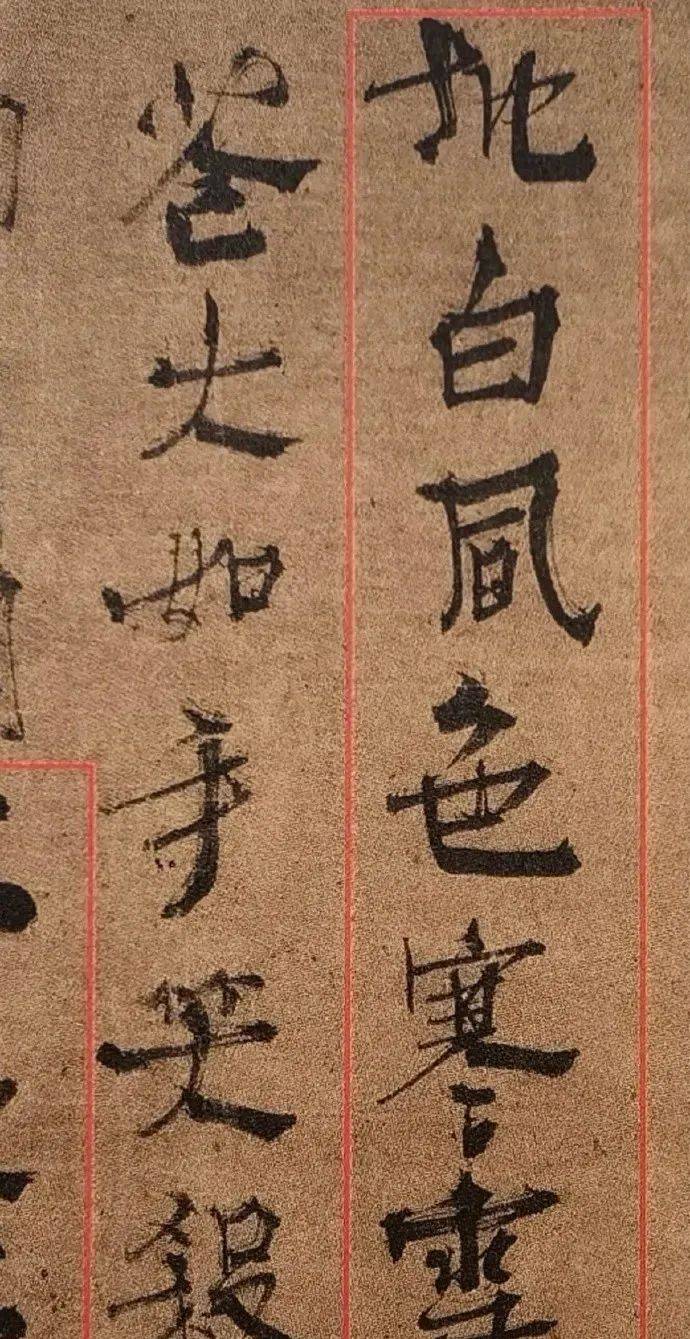 地白風色寒雪
花大如手笑殺